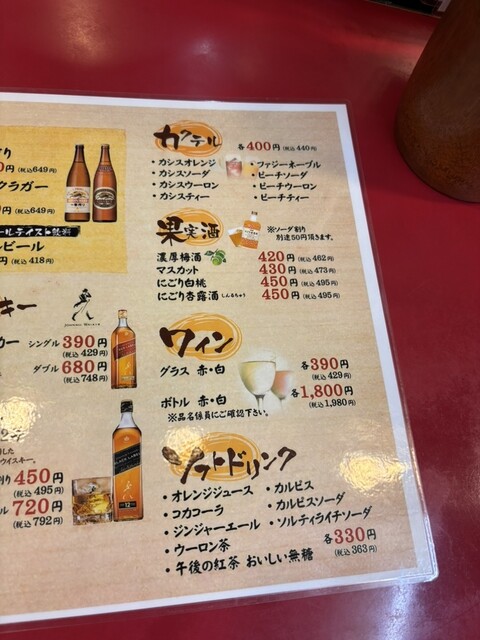 り
0円(税込649円)
クラガー
0円(税込649円)
ールテイスト飲料
ルビール
円(税込418円)
キー
JOHNNIE WALKER
カー
シングル 390円
(税込429円)
ダブル 680円
(税込748円)
した
ウイスキー。
割り 450円
(税込495円)
ル 720円
(税込792円)
カクテル
各400円(税込440円)
・カシスオレンジ
・カシスソーダ
・カシスウーロン
・カシスティー
・ファジーネーブル
・ピーチソーダ
・ピーチウーロン
・ピーチティー
果実酒
※ソーダ割り
別途50円頂きます。
濃厚梅酒 420円(税込462円)
マスカット 430円(税込473円)
にごり白桃 450円(税込495円)
にごり杏露酒しんるちゅう 450円(税込495円)
ワイン
グラス 赤・白 各390円
(税込429円)
ボトル 赤・白 各1,800円
(税込1,980円)
※品名係員にご確認下さい。
ソフトドリンク
・オレンジジュース
・コカコーラ
・ジンジャーエール
・ウーロン茶
・午後の紅茶 おいしい無糖
・カルピス
・カルピスソーダ
・ソルティライチソーダ
各330円
(税込363円)